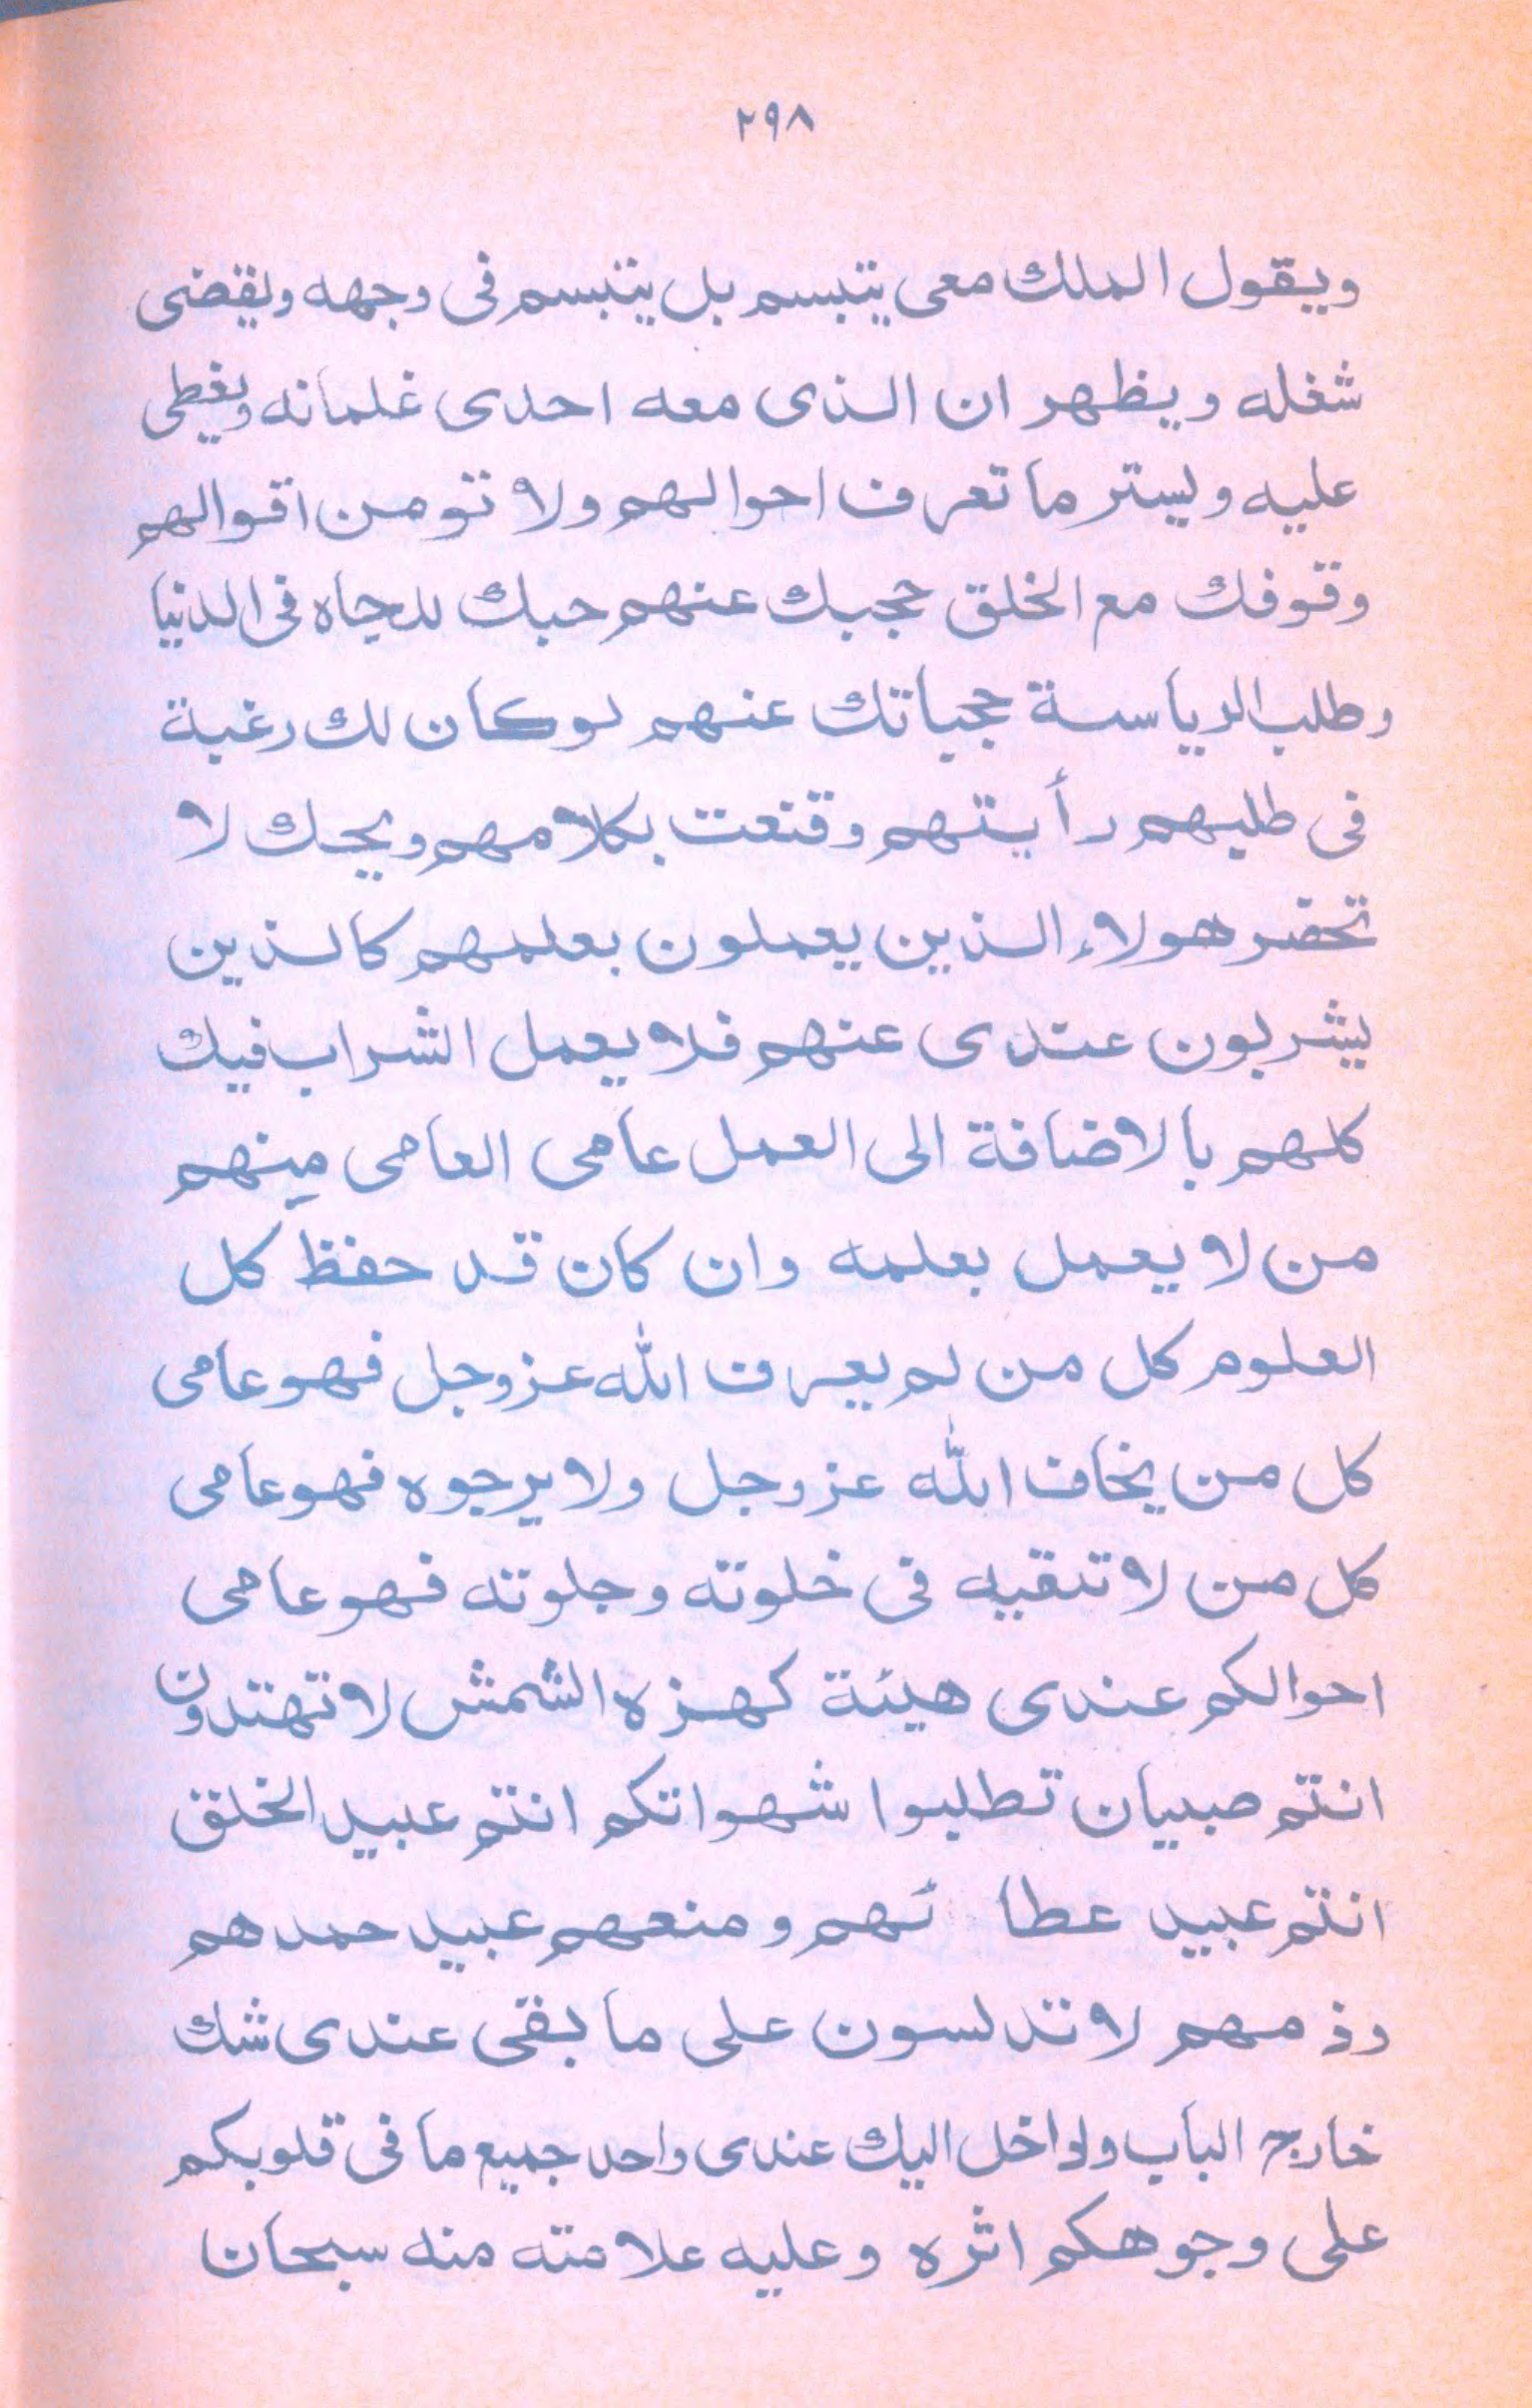 ٢٩٨
ويقول الملك معى يتبسم بل يتبسم فى وجهه ويقضى
شغله ويظهر ان الذى معه احدى غلمانه ويغطى
عليه ويستر ما تعرف احوالهم ولا تومن اقوالهم
وقوفك مع الخلق حجبك عنهم حبك للجاه فى الدنيا
وطلب الرياسة حجباتك عنهم لو كان لك رغبة
فى طلبهم رأيتهم وقنعت بكلامهم ويحك لا
تحضر هولاء الذين يعملون بعلمهم كالذين
يشربون عندى عنهم فلا يعمل الشراب فيك
كلهم بالاضافة الى العمل عامى العامى منهم
من لا يعمل بعلمه وان كان قد حفظ كل
العلوم كل من لم يعرف الله عزوجل فهو عامى
كل من يخاف الله عزوجل ولا يرجوه فهو عامى
كل من لا تتقيه فى خلوته وجلوته فهو عامى
احوالكم عندى هيئة كهزه الشمش لا تهتدون
انتم صبيان تطلبوا شهواتكم انتم عبيد الخلق
انتم عبيد عطا ئهم ومنعهم عبيد حمدهم
وذمهم لا تدلسون على ما بقى عندى شك
خارج الباب ولواخل اليك عندى واحد جميع ما فى قلوبكم
على وجوهكم اثره وعليه علامته منه سبحان